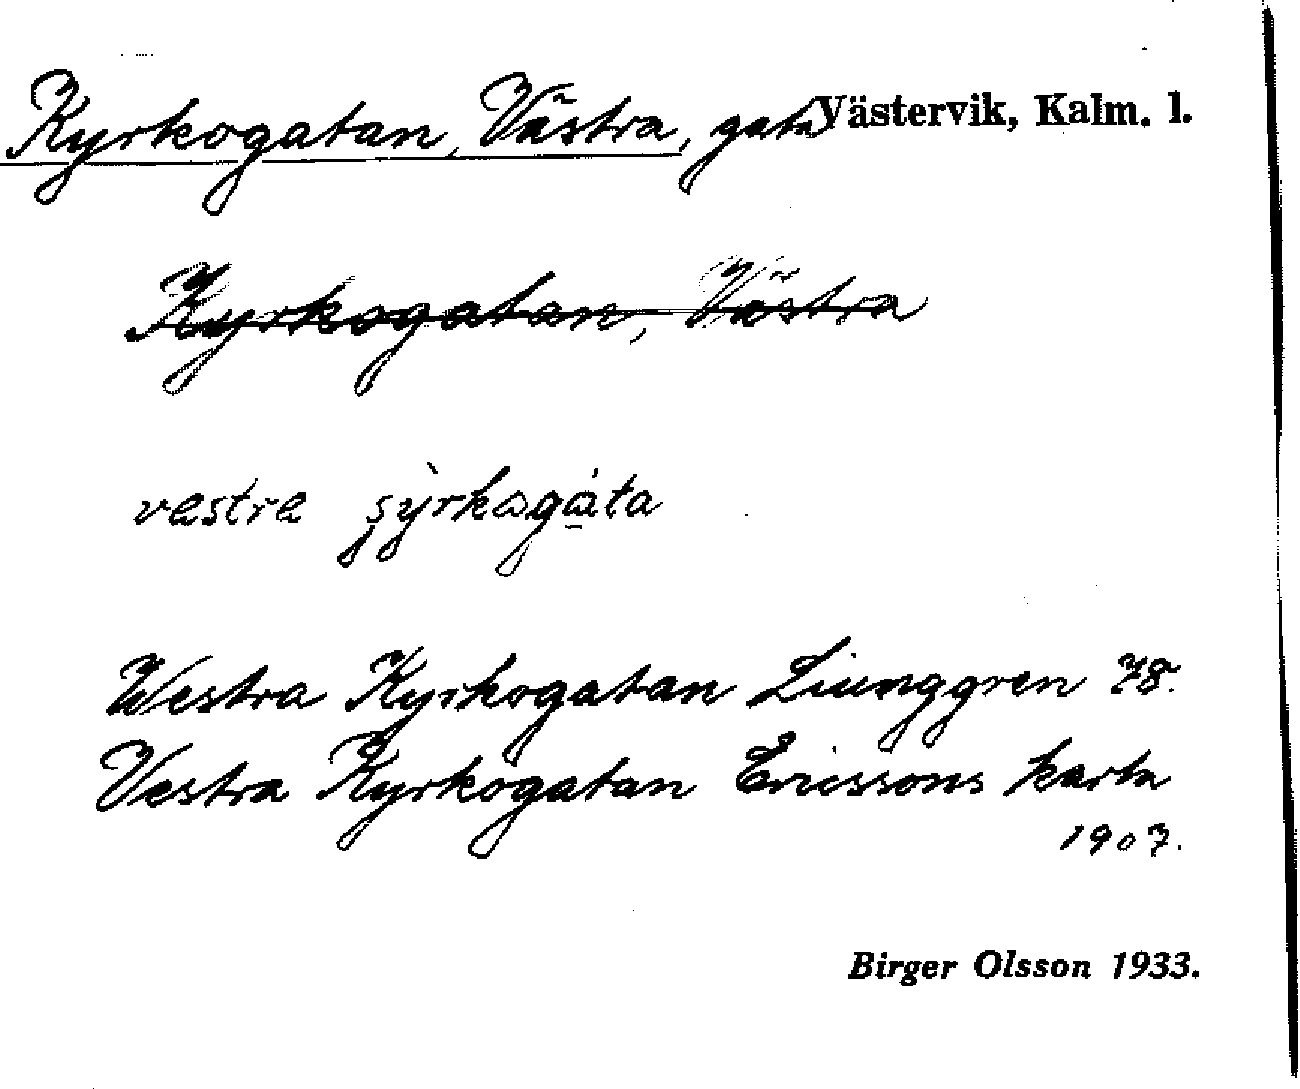 Kyrkogatan, Västra, gata Västervik, Kalm. l.
Kyrkogatan, Västra
vestre
Westra Kyrkogatan Liunggren 78.
Vestra Kyrkogatan Ericssons karta
1907.
Birger Olsson 1933.